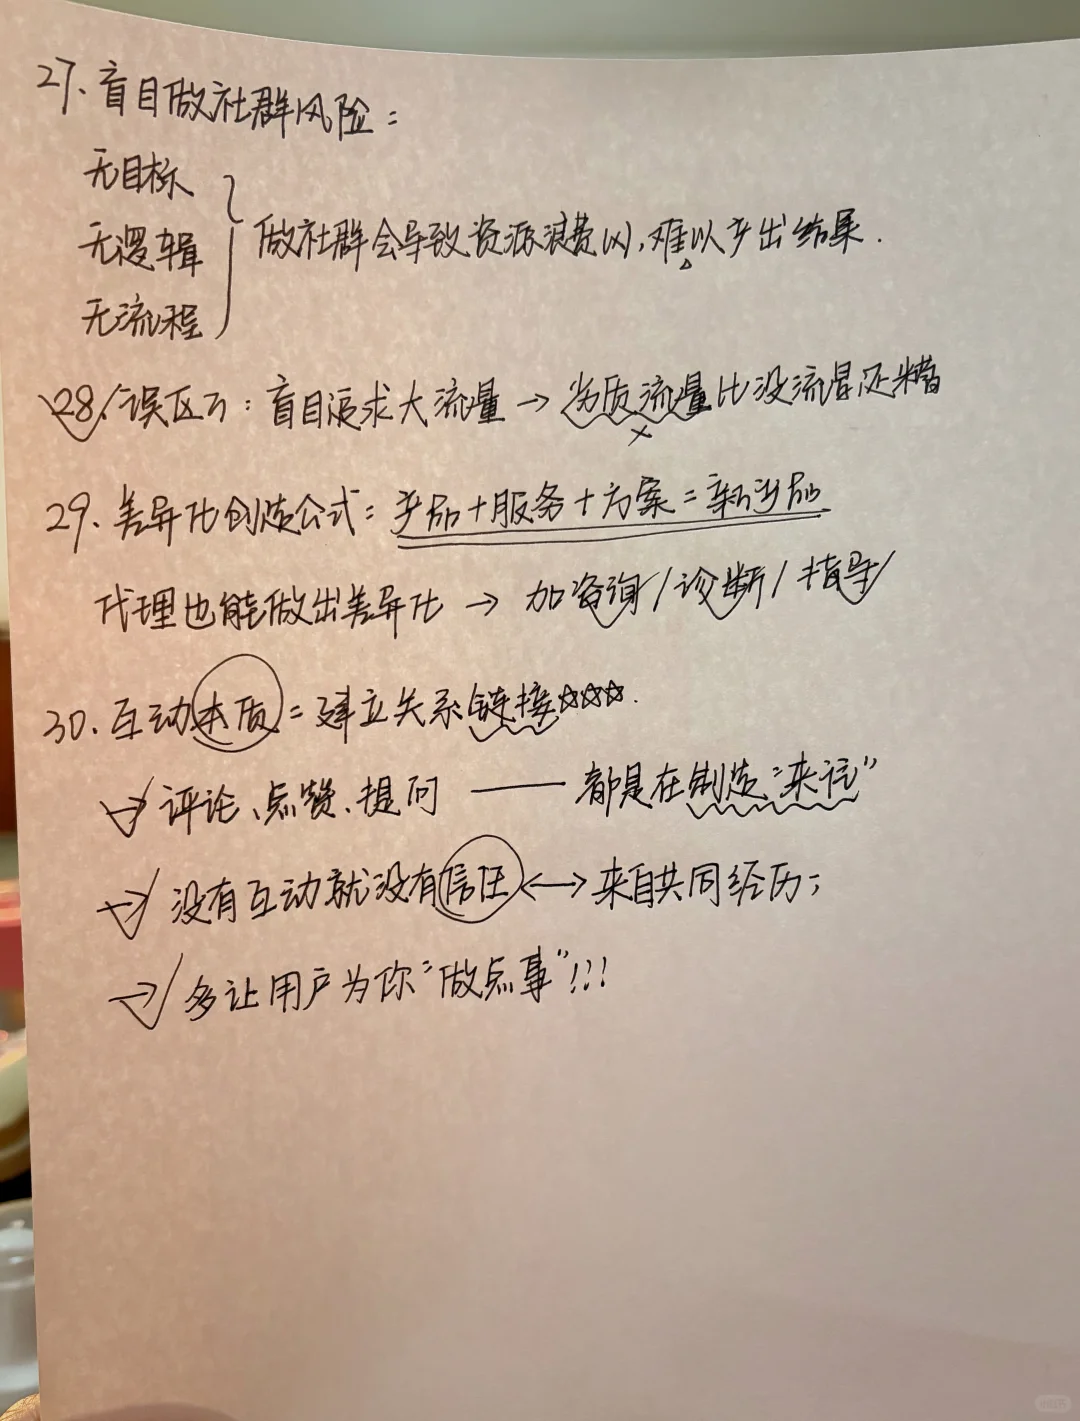 27、盲目做社群风险：
无目标
无逻辑
无流程
做社群会导致资源浪费,难以产出结果.
28.误区：盲目追求大流量→劣质流量比没流量还糟
29、差异化创造公式：产品+服务+方案=新产品
代理也能做出差异化→加咨询/诊断/指导/
30.互动本质=建立关系链接☆☆☆.
→评论、点赞、提问——都是在制造“来往”
→没有互动就没有信任←→来自共同经历;
→多让用户为你“做点事”!!!